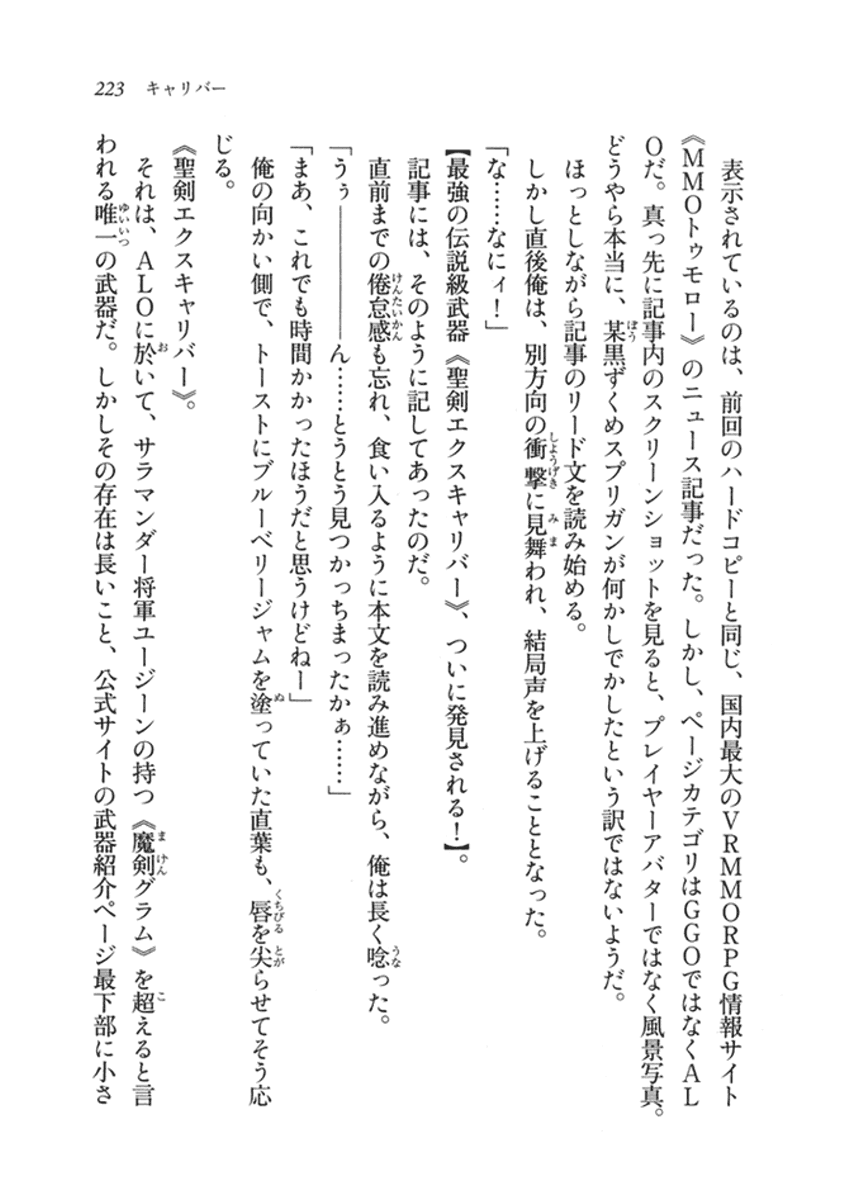 223　キャリバー
　表示されているのは、前回のハードコピーと同じ、国内最大のVRMMORPG情報サイト
《MMOトゥモロー》のニュース記事だった。しかし、ページカテゴリはGGOではなくAL
Oだ。真っ先に記事内のスクリーンショットを見ると、プレイヤーアバターではなく風景写真。
どうやら本当に、某黒ずくめスプリガンが何かしでかしたという訳ではないようだ。
　ほっとしながら記事のリード文を読み始める。
　しかし直後俺は、別方向の衝撃に見舞われ、結局声を上げることとなった。
「な……なにィ！」
【最強の伝説級武器《聖剣エクスキャリバー》、ついに発見される！】。
　記事には、そのように記してあったのだ。
　直前までの倦怠感も忘れ、食い入るように本文を読み進めながら、俺は長く唸った。
「うぅ――――――ん……とうとう見つかっちまったかぁ……」
「まあ、これでも時間かかったほうだと思うけどねー」
　俺の向かい側で、トーストにブルーベリージャムを塗っていた直葉も、唇を尖らせてそう応
じる。
《聖剣エクスキャリバー》。
　それは、ALOに於いて、サラマンダー将軍ユージーンの持つ《魔剣グラム》を超えると言
われる唯一の武器だ。しかしその存在は長いこと、公式サイトの武器紹介ページ最下部に小さ